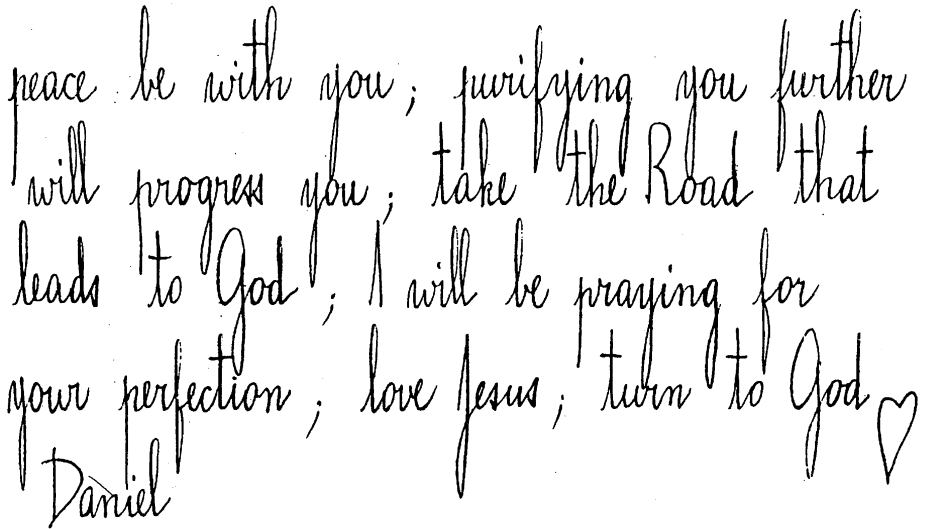 peace be with you ; purifying you further
will progress you ; take the Road that
leads to God ; I will be praying for
your perfection ; love Jesus ; turn to God ♡
Daniel